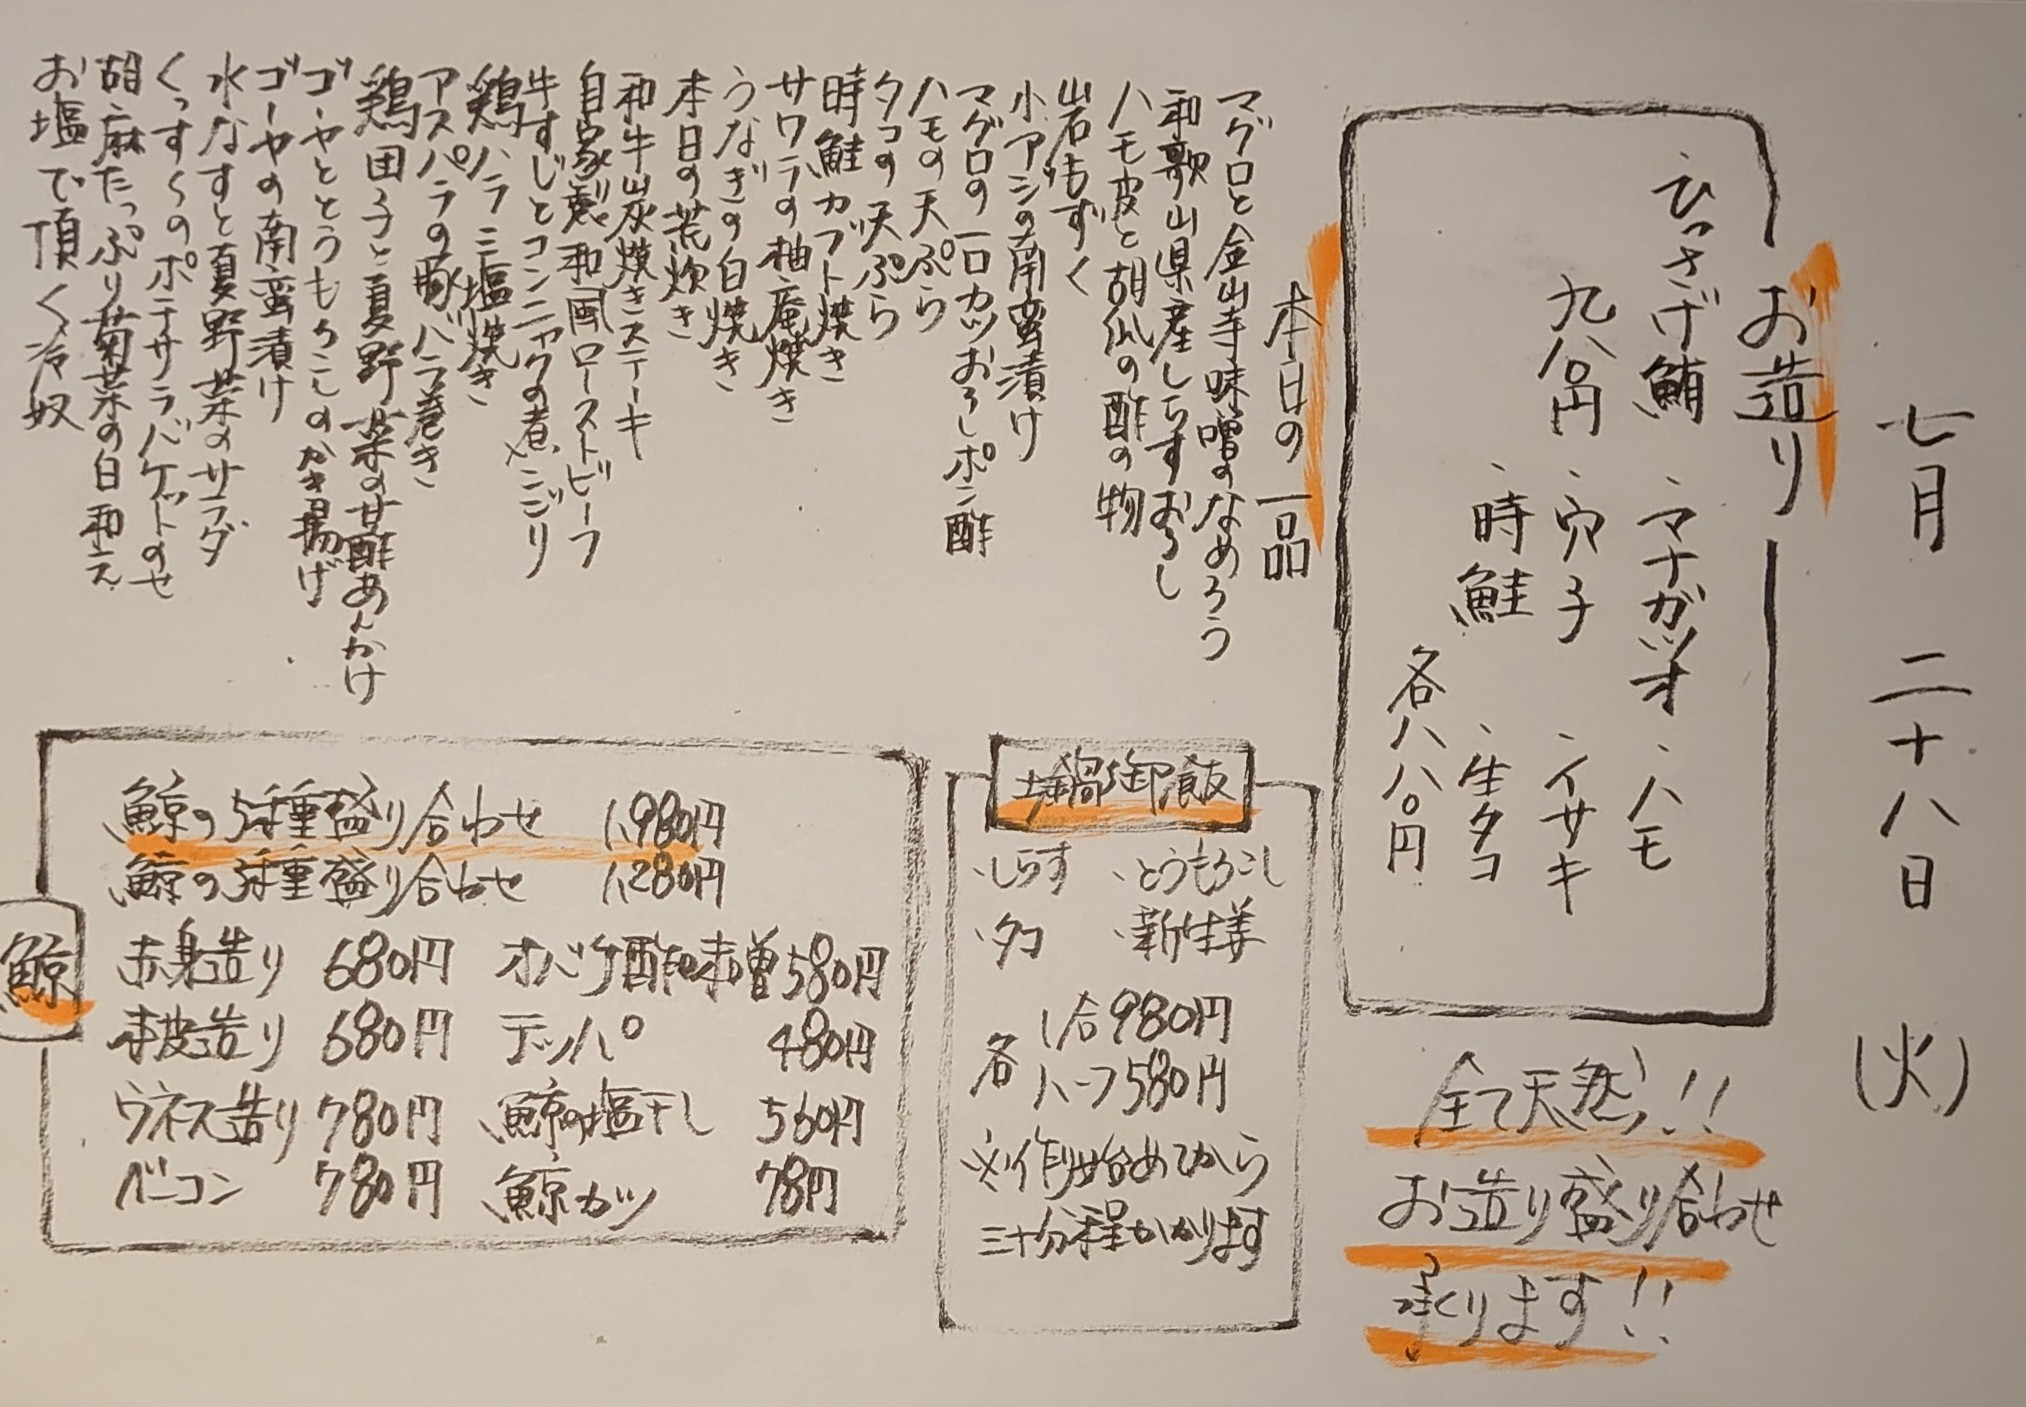 七月二十八日(火)
お造り
・ひっさげ鮪 ・マナガツオ ・ハモ
九八〇円 ・穴子 ・イサキ
・時鮭 ・生タコ
各八八〇円
全て天然!!
お造り盛り合わせ
承ります!!
本日の一品
マグロと金山寺味噌のなめろう
和歌山県産しらすおろし
ハモ皮と胡瓜の酢の物
岩もずく
小アジの南蛮漬け
マグロの一口カツおろしポン酢
ハモの天ぷら
タコの天ぷら
時鮭カブト焼き
サワラの柚庵焼き
うなぎの白焼き
本日の荒炊き
和牛炭焼きステーキ
自家製和風ローストビーフ
牛すじとコンニャクの煮こごり
鶏ハラミ塩焼き
アスパラの豚バラ巻き
鶏団子と夏野菜の甘酢あんかけ
ゴーヤととうもろこしのかき揚げ
ゴーヤの南蛮漬け
水なすと夏野菜のサラダ
くっすくのポテサラバケットのせ
胡麻たっぷり菊菜の白和え
お塩で頂く冷奴
土鍋御飯
・しらす ・とうもろこし
・タコ ・新生姜
各 1合980円
ハーフ580円
※作り始めてから
三十分程かかります
鯨
鯨の5種盛り合わせ 1,980円
鯨の3種盛り合わせ 1,280円
赤身造り 680円 オバケ酢味噌 580円
本皮造り 680円 テッパ 480円
ウネス造り 780円 鯨の塩干し 560円
ベーコン 780円 鯨カツ 78円